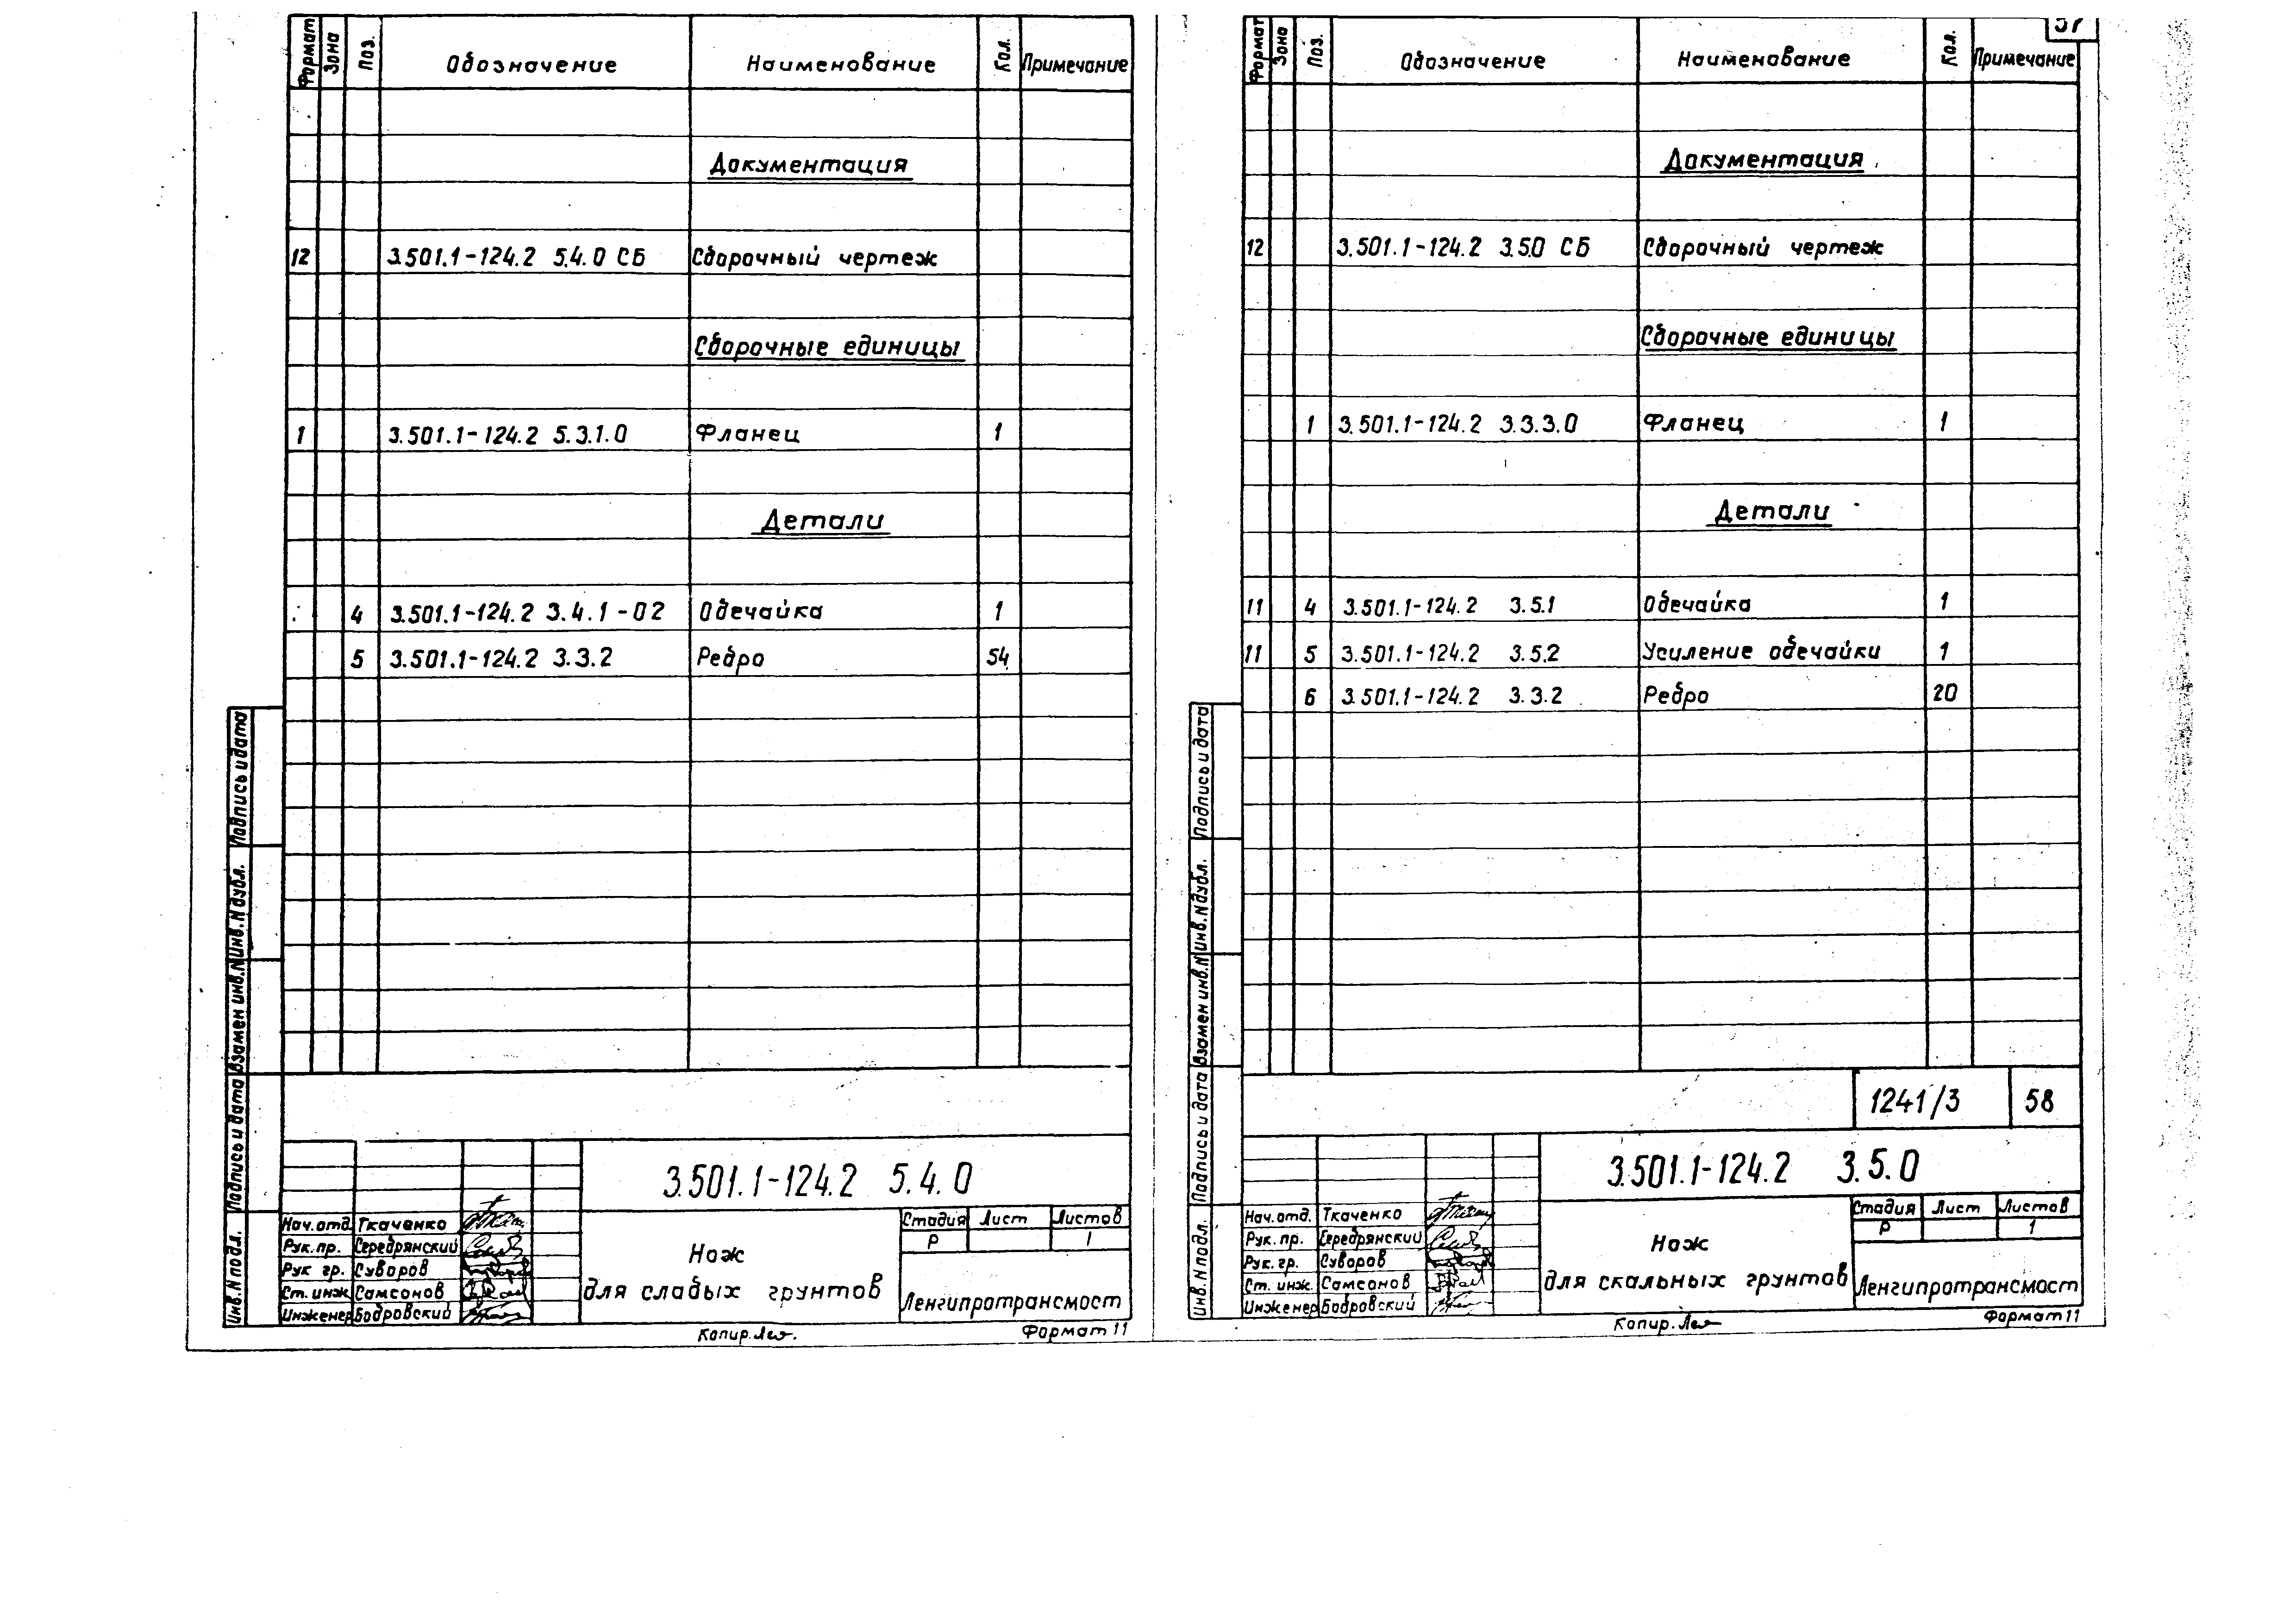 Формат Зона Поз. Обозначение Наименование Кол. Примечание
Документация
12 3.501.1-124.2 5.4.0 СБ Сборочный чертеж
Сборочные единицы
1 3.501.1-124.2 5.3.1.0 Фланец 1
Детали
4 3.501.1-124.2 3.4.1-02 Обечайка 1
5 3.501.1-124.2 3.3.2 Ребро 54
Подпись и дата
Инв. N дубл.
Взамен инв. N
Подпись и дата
Инв. N подл.
3.501.1-124.2 5.4.0
Нач. отд. Ткаченко
Рук. пр. Серебрянский
Рук гр. Суворов
Ст. инж. Самсонов
Инженер Бобровский
Нож
для слабых грунтов
Стадия Лист Листов
Р 1
Ленгипротрансмост
Копир.
Формат 11
57
Формат Зона Поз. Обозначение Наименование Кол. Примечание
Документация
12 3.501.1-124.2 3.5.0 СБ Сборочный чертеж
Сборочные единицы
1 3.501.1-124.2 3.3.3.0 Фланец 1
Детали
11 4 3.501.1-124.2 3.5.1 Обечайка 1
11 5 3.501.1-124.2 3.5.2 Усиление обечайки 1
6 3.501.1-124.2 3.3.2 Ребро 20
Подпись и дата
Инв. N дубл.
Взамен инв. N
Подпись и дата
Инв. N подл.
1241/3 58
3.501.1-124.2 3.5.0
Нач. отд. Ткаченко
Рук. пр. Серебрянский
Рук. гр. Суворов
Ст. инж. Самсонов
Инженер Бобровский
Нож
для скальных грунтов
Стадия Лист Листов
Р 1
Ленгипротрансмост
Копир.
Формат 11